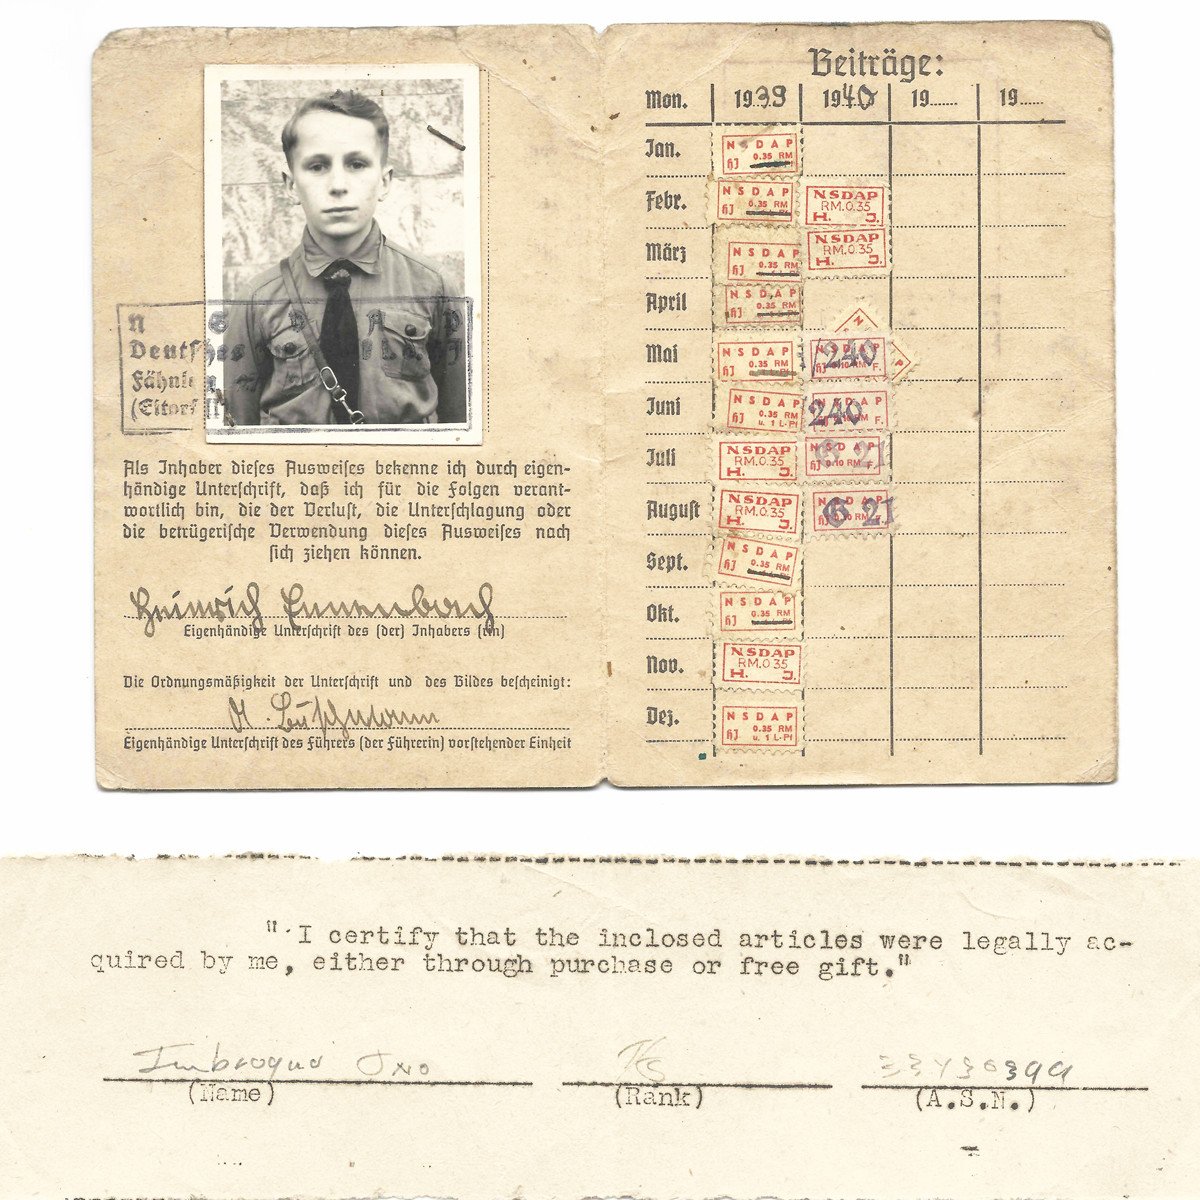 N S D A P
Deutsches
Fähnlein
(Eitorf
Als Inhaber dieses Ausweises bekenne ich durch eigen-
händige Unterschrift, daß ich für die Folgen verant-
wortlich bin, die der Verlust, die Unterschlagung oder
die betrügerische Verwendung dieses Ausweises nach
sich ziehen können.
Heinrich Ennenbach
Eigenhändige Unterschrift des (der) Inhabers (rin)
Die Ordnungsmäßigkeit der Unterschrift und des Bildes bescheinigt:
Eigenhändige Unterschrift des Führers (der Führerin) vorstehender Einheit
Beiträge:
Mon. 1939 1940 19...... 19......
Jan. NSDAP HJ 0.35 RM
Febr. NSDAP HJ 0.35 RM NSDAP RM.0.35 H. J.
März NSDAP HJ 0.35 RM NSDAP RM.0.35 H. J.
April NSDAP HJ 0.35 RM
Mai NSDAP HJ 0.35 RM 240
Juni NSDAP HJ 0.35 RM u. 1 L-Pf NSDAP 240
Juli NSDAP RM.0.35 H. J. NSDAP HJ 0.10 RM F. 21
August NSDAP RM.0.35 H. J. NSDAP G 21
Sept. NSDAP HJ 0.35 RM
Okt. NSDAP HJ 0.35 RM
Nov. NSDAP RM.0.35 H. J.
Dez. NSDAP HJ 0.35 RM u. 1 L-Pf
" I certify that the inclosed articles were legally ac-
quired by me, either through purchase or free gift."
(Name) (Rank) (A.S.N.)